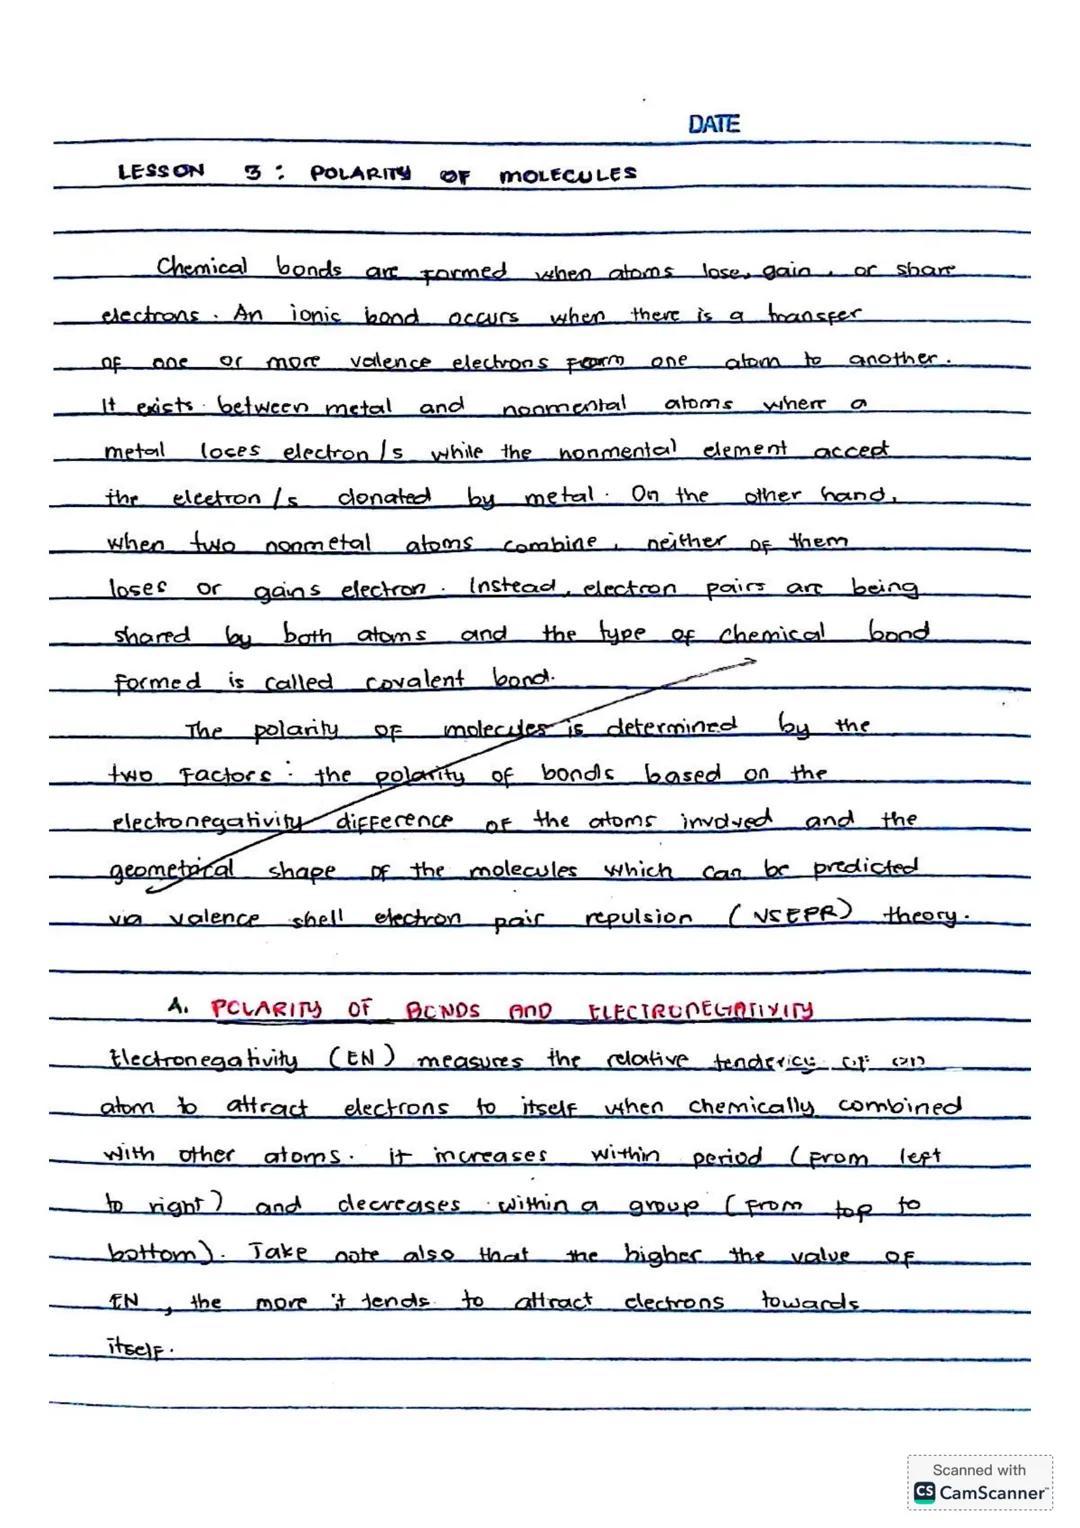 DATE
LESSON 3 : POLARITY OF MOLECULES
Chemical bonds are formed when atoms lose, gain, or share
electrons. An ionic bond occurs when there is a transfer
of one or more valence electrons from one atom to another.
It exists between metal and nonmental atoms where a
metal loces electron/s while the nonmental element accept
the electron/s donated by metal. On the other hand,
when two nonmetal atoms combine, neither of them
loses or gains electron. Instead, electron pairs are being
shared by both atoms and the type of chemical bond
formed is called covalent bond.
The polarity of molecules is determined by the
two factors : the polarity of bonds based on the
electronegativity difference of the atoms involved and the
geometrical shape of the molecules which can be predicted
via valence shell electron pair repulsion (VSEPR) theory.
A. POLARITY OF BONDS AND ELECTRONEGATIVITY
Electronegativity (EN) measures the relative tendency of an
atom to attract electrons to itself when chemically combined
with other atoms. it increases within period (from left
to right) and decreases within a group (from top to
bottom). Take note also that the higher the value of
EN, the more it tends to attract electrons towards
itself.
Scanned with
CS CamScanner